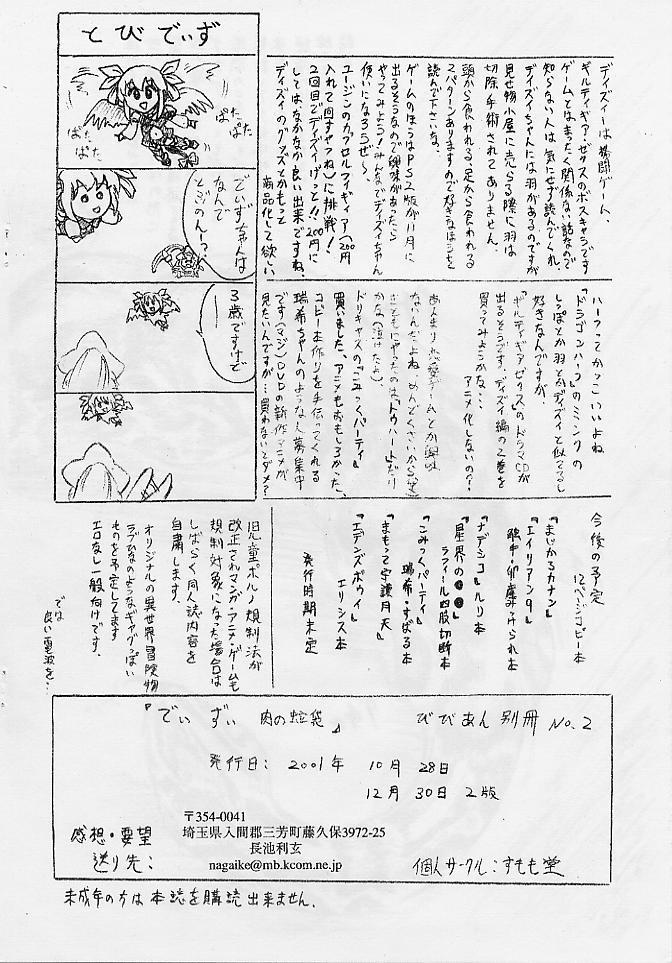 とびでぃず
ぱた
ぱた
ぱた
ぱた
でぃずちゃんは
なんで
3歳ですけど
ディズィーは格闘ゲーム、
ギルティギア・ゼクスのボスキャラですが
ゲームとはまったく関係ない話なので
知らない人は気にせず読んでくれ。
ディズィちゃんには羽があるのですが
見せ物小屋に売られる際に羽は
切除手術されてありません。
頭から食われる、足から食われる
2パターンありますので好きなほうを
読んで下さいな。
ゲームのほうはPS2版が11月に
出るそうなので興味があったら
やってみよう!みんなでディズィちゃん
使いになろうぜ〜
ユージンのカプセルフィギュア(200円
入れて回すやつね)に挑戦!
2回目でディズィげっと!!200円に
しては なかなか良い出来ですね。
ディズィのグッズとかもっと
商品化して欲しい。
ハーフってかっこいいよね
『ドラゴンハーフ』のミンクの
しっぽとか羽とかディズィと似てるし
好きなんですが、
『ギルティギアゼクス』のドラマCDが
出るそうです。ディズィ編の2巻を
買ってみようかな・・・
アニメ化しないの??
あんまり恋愛ゲームとか興味
ないんだよね、めんどくさいから(笑)
まともにやったのはトゥハートだけ
かな(泣けたよ)
ドリキャスの『こみっくパーティ』
買いました、アニメもおもしろかった。
コピー本作りを手伝ってくれる
瑞希ちゃんのような人募集中
です(マジ)DVDの新作アニメが
見たいんですが…買わないとダメ?
今後の予定
12ページコピー本
『まじかるカナン』
『エイリアン9』
『ナデシコ』ルリ本
『星界の●●』
ラフィール四肢切断本
『こみっくパーティ』
瑞希・すばる本
『まもって守護月天』
本
『エデンズボゥイ』
エリシス本
発行時期未定
児童ポルノ規制法が
改正されマンガ・アニメ・ゲームも
規制対象になった場合は
しばらく同人誌内容を
自粛します。
オリジナルの異世界冒険物
ラブひなのようなギャグっぽい
ものを予定してます
エロなし一般向けです。
では
良い電波を…
『でぃずぃ 肉の 袋』 びびあん別冊 No.2
発行日: 2001年 10月 28日
12月 30日 2版
〒354-0041
埼玉県入間郡三芳町藤久保3972-25
長池利玄
nagaike@mb.kcom.ne.jp
感想・要望
送り先:
個人サークル:すもも堂
未成年の方は本誌を購読出来ません。